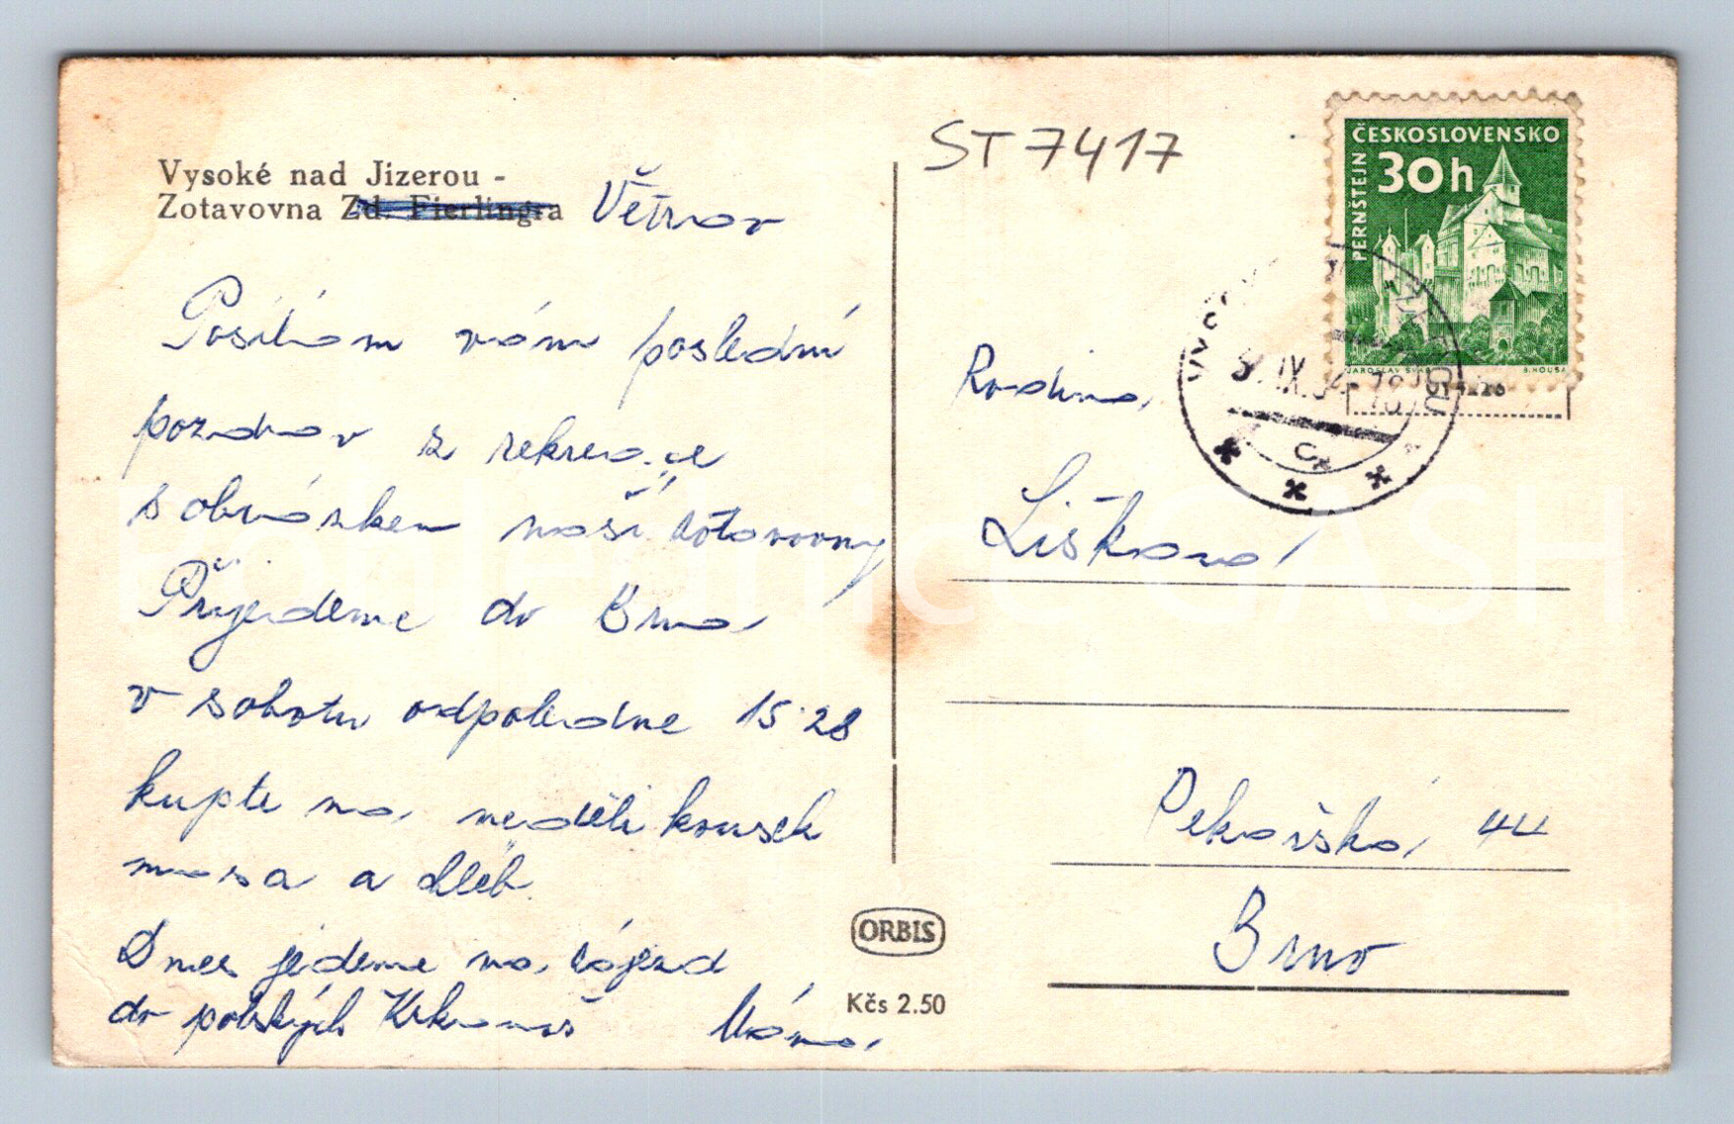 Vysoké nad Jizerou -
Zotavovna Zd. Fierlingra Větrov
Posílám vám poslední
pozdrav z rekreace
s obrázkem naší zotavovny
Přijedeme do Brna
v sobotu odpoledne 15·28
kupte na neděli kousek
masa a chléb.
Dnes jedeme na zájezd
do polských Krkonoš Máma.
ORBIS
Kčs 2.50
ST 7417
ČESKOSLOVENSKO
30h
PERNŠTEJN
Rodina
Lišková
Pekařská 44
Brno